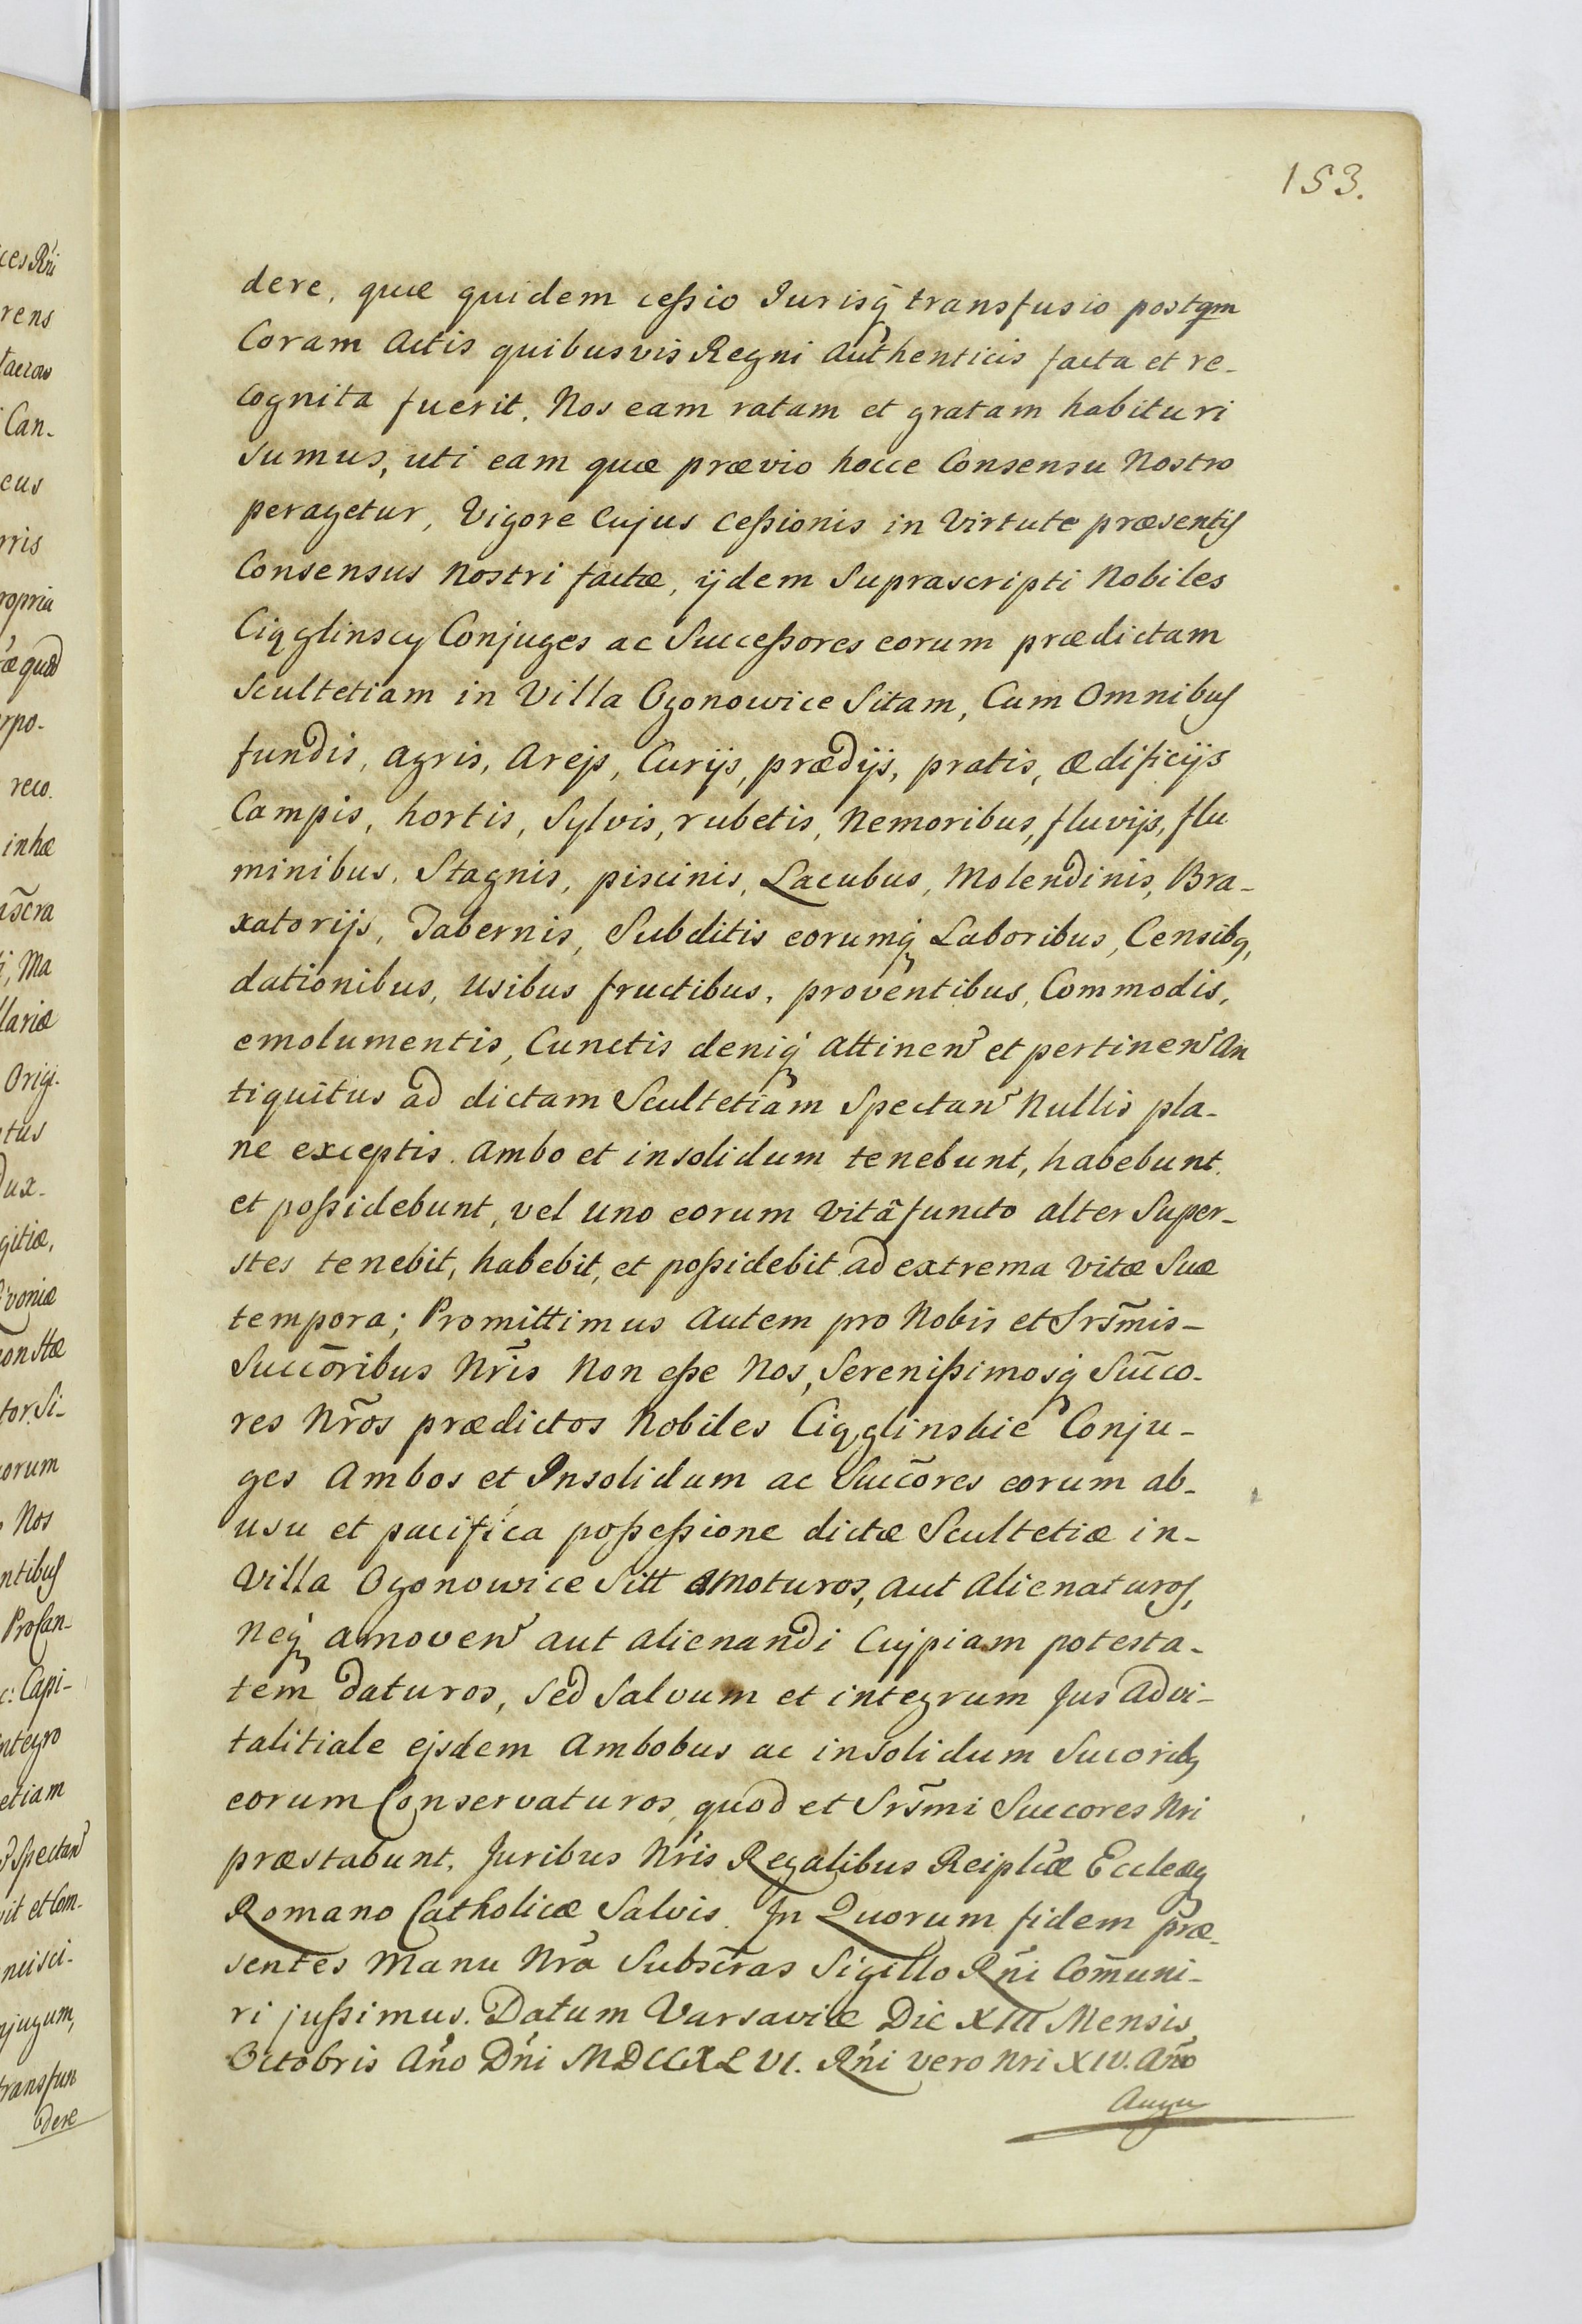 153.
dere, quæ quidem ceßio Jurisq̃ transfusio postqm
Coram Actis quibusvis Regni Authenticis facta et re-
cognita fuerit. Nos eam ratam et gratam habituri
sumus, uti eam quæ prævio hocce Consensu Nostro
peragetur, Vigore Cujus Ceßionis in Virtute præsentis
Consensus Nostri factæ, ijdem Suprascripti Nobiles
Ciąglinscy Conjuges ac Succeßores eorum prædictam
Scultetiam in Villa Ogonowice Sitam, Cum Omnibus
fundis, agris, Arejs, Curijs, prædijs, pratis, ædificijs
Campis, hortis, Sylvis, rubetis, Nemoribus, fluvijs, flu
minibus, Stagnis, piscinis, Lacubus, Molendinis, Bra-
xatorijs, Tabernis, Subditis eorumq̃ Laboribus, Censibq,
dationibus, Usibus fructibus, proventibus, Commodis,
emolumentis, Cunctis deniq̃ Attinen̄ et pertinen̄ An
tiquitus ad dictam Scultetiam Spectan̄ Nullis pla-
ne exceptis. Ambo et insolidum tenebunt, habebunt
et poßidebunt, vel uno eorum vitâ functo alter Super-
stes tenebit, habebit, et poßidebit ad extrema vitæ Suæ
tempora; Promittimus Autem pro Nobis et Srs̃mis-
Succõribus Nr̃is Non eße Nos, Serenißimosq̃ Suc̃co-
res Nr̃os prædictos Nobiles Ciąglinskie Conju-
ges Ambos et Insolidum ac Succ̃ores eorum ab-
usu et pacifica poßeßione dictæ Scultetiæ in-
Villa Ogonowice Sitt amoturos, aut Alienaturos,
neq̃ amoven̄ aut alienandi Cujpiam potesta-
tem daturos, sed Salvum et integrum Jus Advi-
talitiale ejsdem Ambobus ac insolidum Sucoribq
eorum Conservaturos, quod et Srs̃mi Succores Nri
præstabunt. Juribus Nr̃is Regalibus Reiplicæ Eccleæq
Romano Catholicæ Salvis. In Quorum fidem præ-
sentes Manu Nr̃a Subscr̃as Sigillo Rñi Com̃uni-
ri jußimus. Datum Varsaviæ Die XIII Mensis
Octobris Año Dñi MDCCXLVI. Rñi vero Nri XIV. Año
Augu